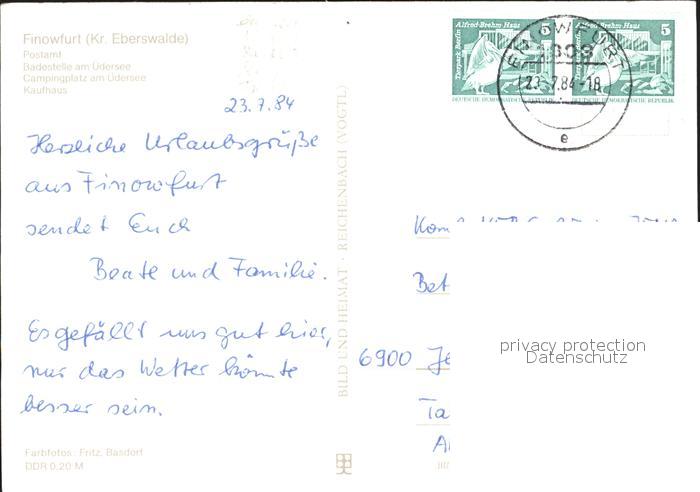 Finowfurt (Kr. Eberswalde)
Postamt
Badestelle am Üdersee
Campingplatz am Üdersee
Kaufhaus
23.7.84
Herzliche Urlaubsgrüße
aus Finowfurt
sendet Euch
Beate und Familie.
Es gefällt uns gut hier,
nur das Wetter könnte
besser sein.
Farbfotos: Fritz, Basdorf
DDR 0,20 M
BILD UND HEIMAT · REICHENBACH (VOGTL)
Tierpark Berlin
Alfred-Brehm-Haus
DEUTSCHE DEMOKRATISCHE REPUBLIK
Alfred-Brehm-Haus
5
DEUTSCHE DEMOKRATISCHE REPUBLIK
FINOWFURT
23.7.84-18
e
Kom
Bet
6900 Je
Ta
privacy protection
Datenschutz